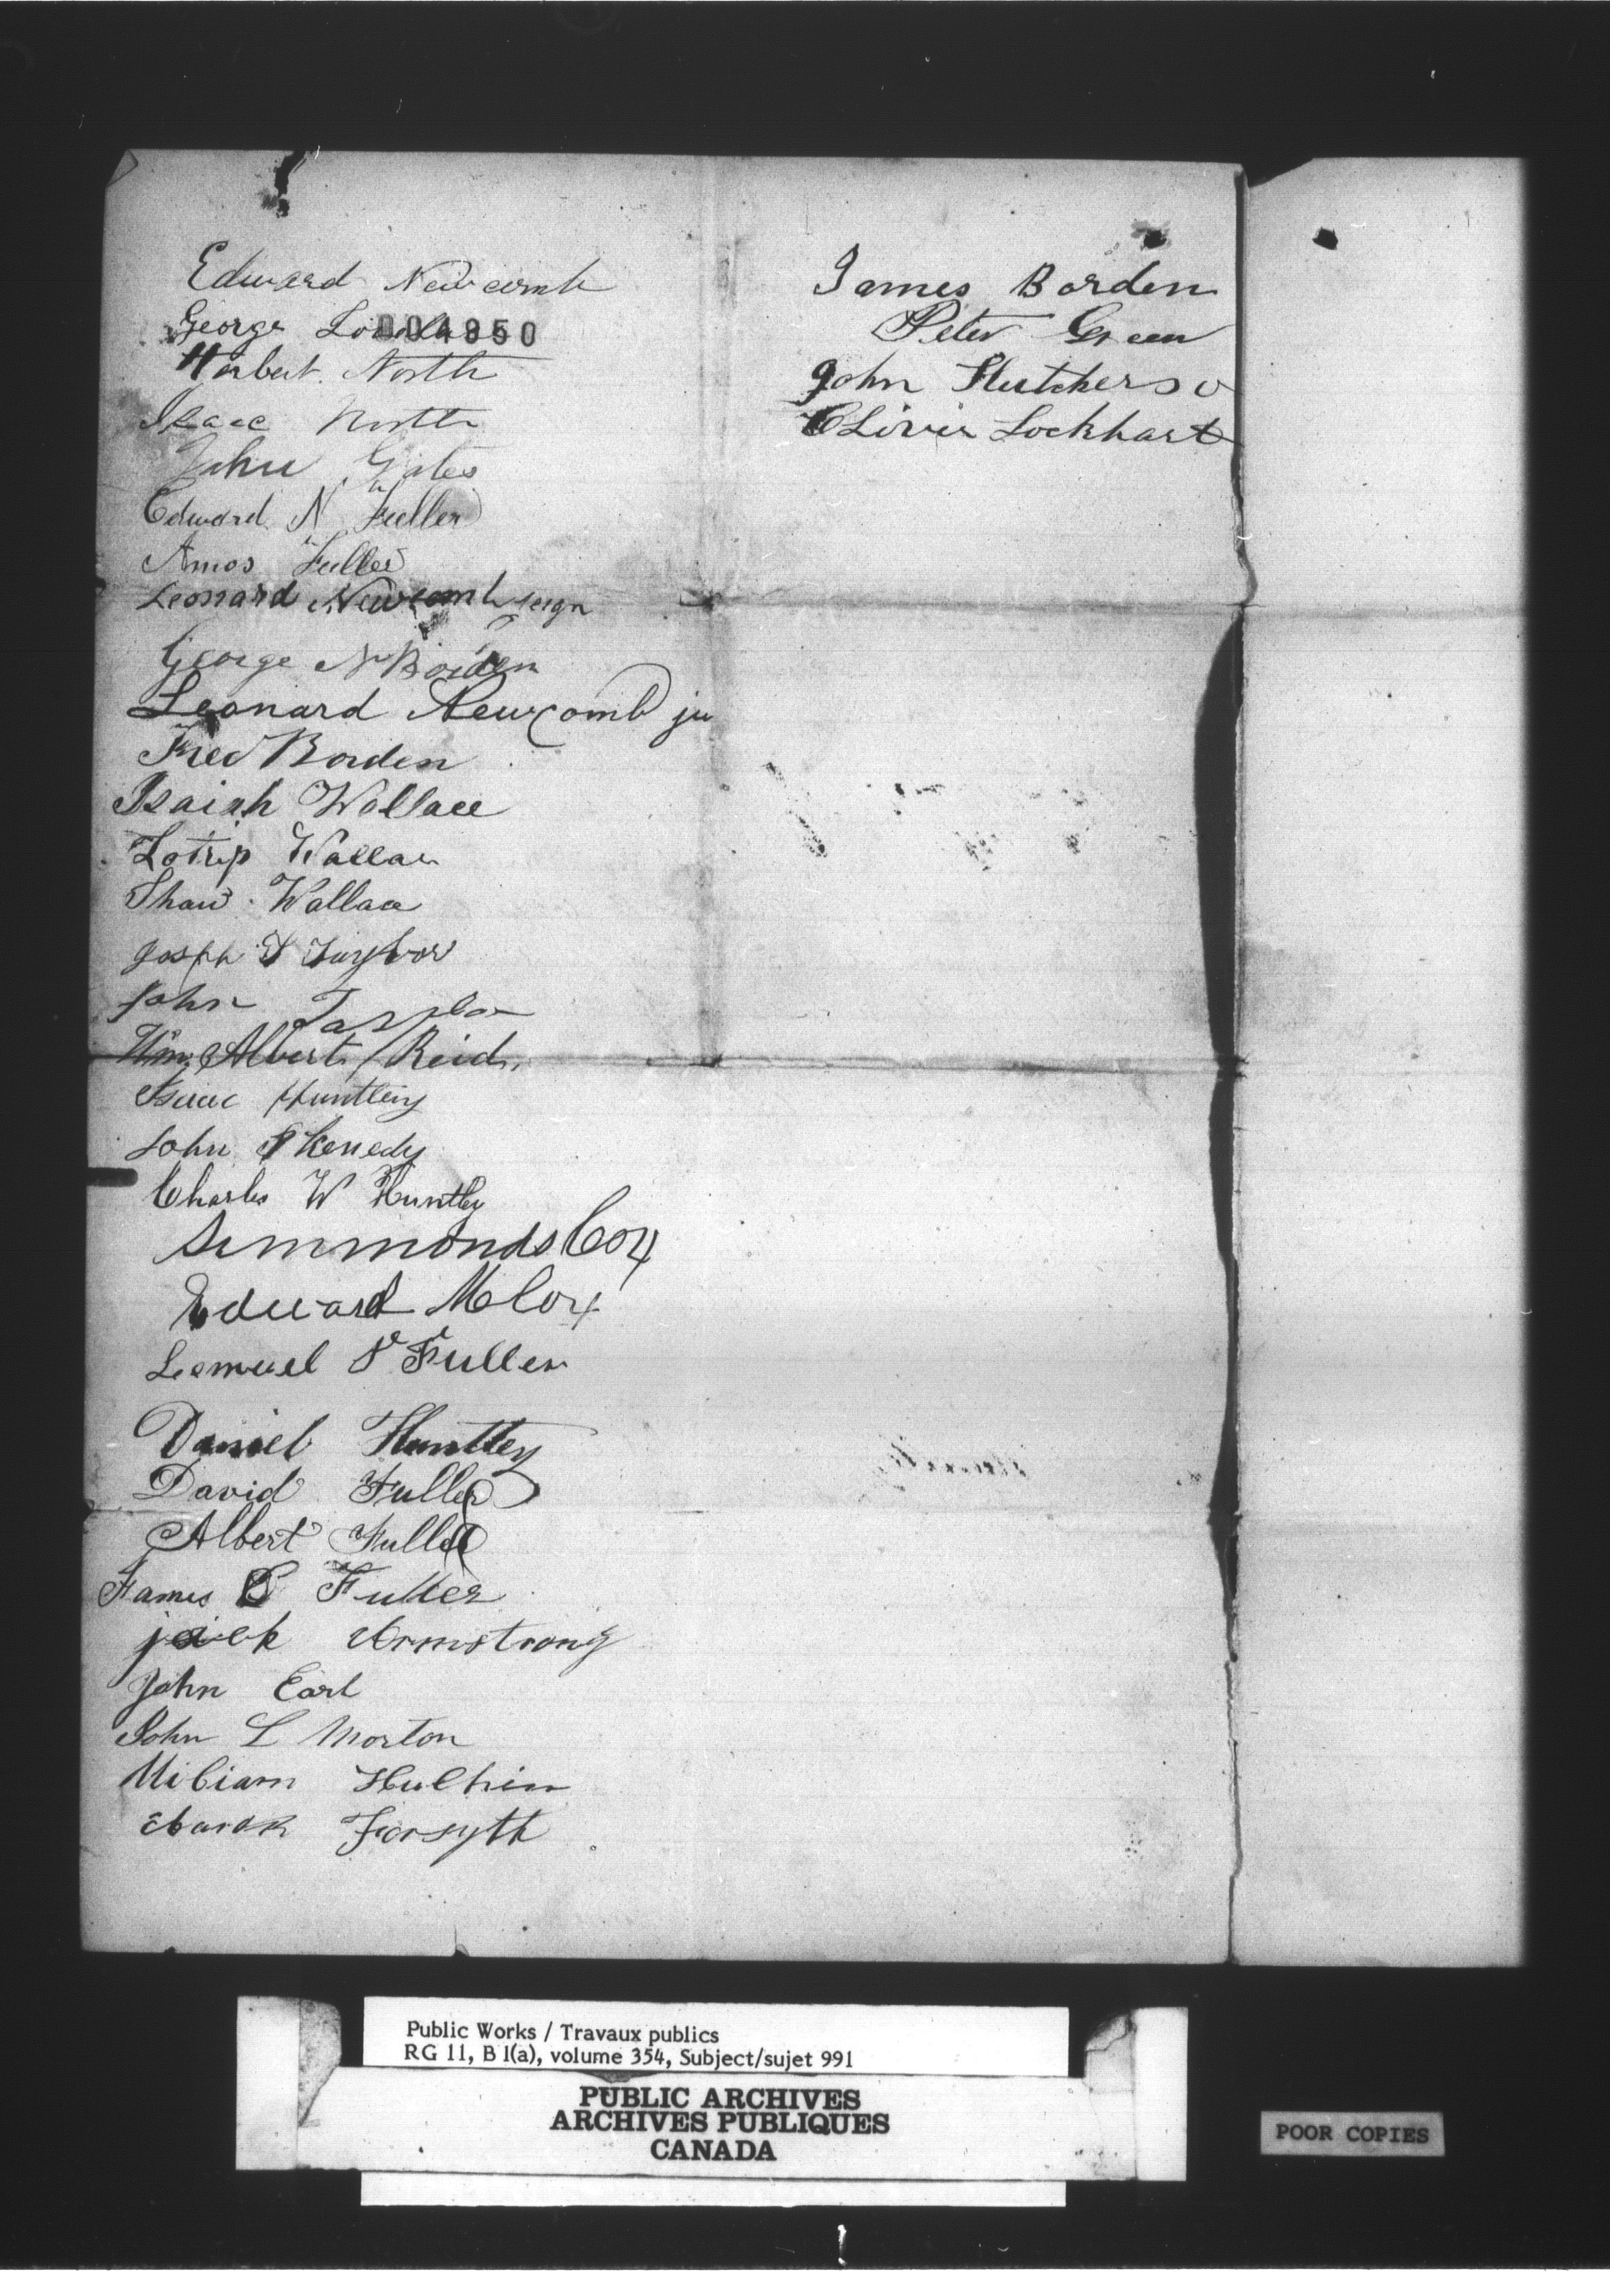 Edward Newcomb
George
004850
Herbert North
Isaac North
John Gates
Edward N Fuller
Amos Fuller
Leonard Newcomb
George N Borden
Leonard Newcomb ju
Fred Borden
Isaiah Wallace
Lotrip Wallace
Shaw Wallace
Josph Taylor
John Taylor
Wm Albert Reid
Isaac Huntley
John Kenedy
Charles W Huntley
Simmonds Cox
Edward M Cox
Lemuel Fuller
Daniel Huntley
David Fuller
Albert Fuller
James Fuller
Armstrong
John Earl
John L Morton
William
Forsyth
James Borden
Peter Green
John Hutcherso
Lockhart
Public Works / Travaux publics
RG 11, B 1(a), volume 354, Subject/sujet 991
PUBLIC ARCHIVES
ARCHIVES PUBLIQUES
CANADA
POOR COPIES